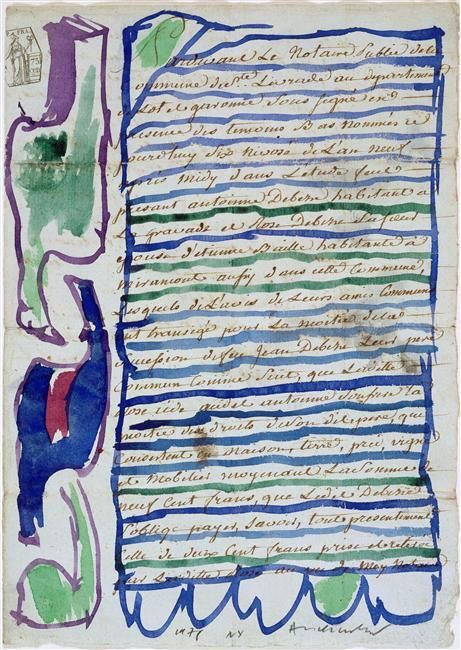 Pardevant Le Notaire Public de la
Commune de Ste. La rade au departement
de Lot et garonne Sous signé en
presence des temoins Bas Nommés ce
jourd'huy Six Nivose de L'an neuf
après Midy dans L'etude feut
present antoinne Debize habitant a
La gravade et Rose Debize La Sœur
epouse d'etienne habitante à
miramont aussy dans cette Commune,
Lesquels de L'avis de Leurs amis Communs
ont transigé pour La moitié de la
succession de feu Jean Debize Leur pere
Commun Comme Suit, que Laditte
Rose cède audit antoinne Son frere la
moitié des droits de Son dit pere, que
Consistent en Maison, terre, prés, vigne
et Mobilier moyenant La Somme de
neuf Cent frans, que Ledit Debize
S'oblige payer, Savoir, tout presentement
Celle de deux Cent frans prise et retirée
par Laditte Rose au vu de Moy Notaire
1976 NY